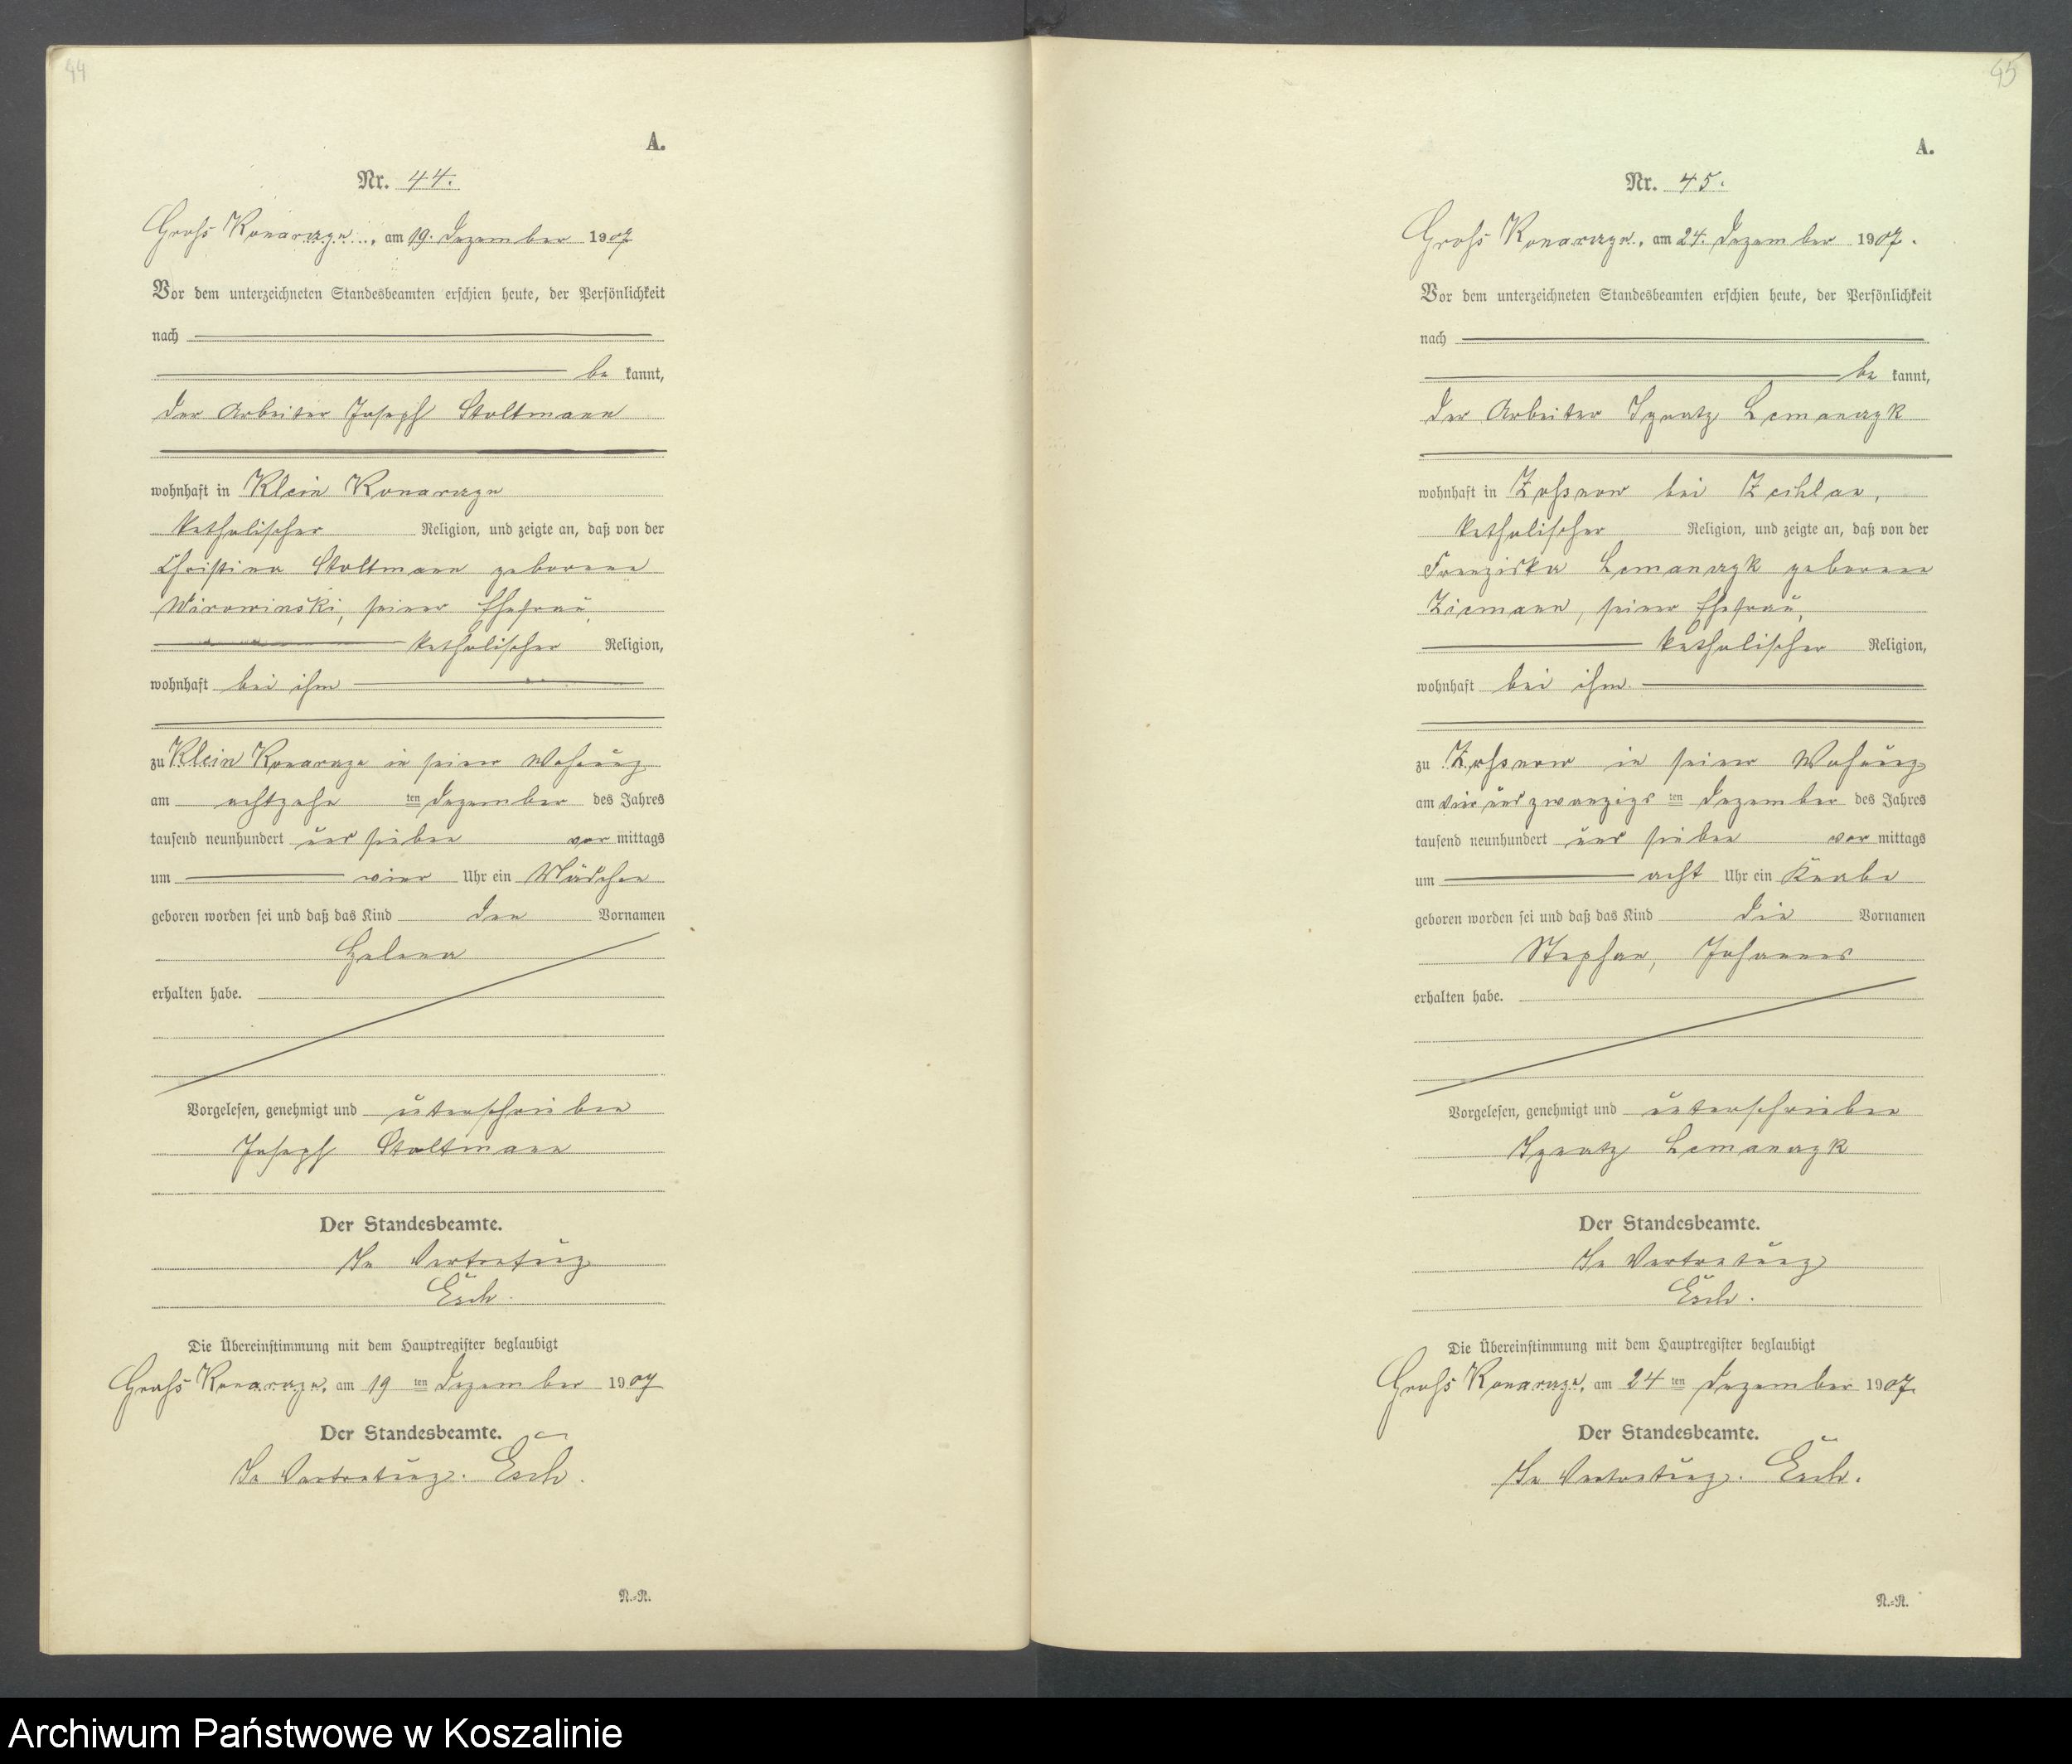 44
A.
Nr. 44.
Groß Konarczyn, am 19. Dezember 1907
Vor dem unterzeichneten Standesbeamten erschien heute, der Persönlichkeit
nach
be kannt,
der Arbeiter Joseph Stoltmann
wohnhaft in Klein Konarczyn
katholischer Religion, und zeigte an, daß von der
Christina Stoltmann geborene
seiner Ehefrau,
katholischer Religion,
wohnhaft bei ihm
zu Klein Konarczyn in seiner Wohnung
am achtzehn ten Dezember des Jahres
tausend neunhundert und sieben vor mittags
um vier Uhr ein Mädchen
geboren worden sei und daß das Kind den Vornamen
Helena
erhalten habe.
Vorgelesen, genehmigt und unterschrieben
Joseph Stoltmann
Der Standesbeamte.
In Vertretung
Esch.
Die Übereinstimmung mit dem Hauptregister beglaubigt
Groß Konarczyn, am 19 ten Dezember 1907
Der Standesbeamte.
In Vertretung. Esch.
N.-R.
45
A.
Nr. 45.
Groß Konarczyn, am 24. Dezember 1907.
Vor dem unterzeichneten Standesbeamten erschien heute, der Persönlichkeit
nach
be kannt,
der Arbeiter Ignatz Lemanczyk
wohnhaft in Zoßnow bei Zechlau,
katholischer Religion, und zeigte an, daß von der
Franziska Lemanczyk geborene
Ziemann, seiner Ehefrau,
katholischer Religion,
wohnhaft bei ihm.
zu Zoßnow in seiner Wohnung
am vier und zwanzigs ten Dezember des Jahres
tausend neunhundert und sieben vor mittags
um acht Uhr ein Knabe
geboren worden sei und daß das Kind die Vornamen
Stephan, Johannes
erhalten habe.
Vorgelesen, genehmigt und unterschrieben
Ignatz Lemanczyk
Der Standesbeamte.
In Vertretung
Esch.
Die Übereinstimmung mit dem Hauptregister beglaubigt
Groß Konarczyn, am 24 ten Dezember 1907.
Der Standesbeamte.
In Vertretung. Esch.
N.-R.
Archiwum Państwowe w Koszalinie